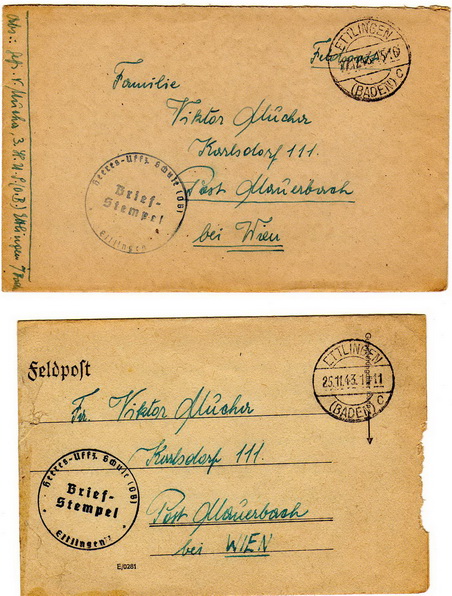 Feldpost
ETTLINGEN
(BADEN) c
Familie
Viktor Mücha
Karlsdorf 111.
Post Mauerbach
bei Wien
Heeres-Uffz. Schule (OB)
Brief-
Stempel
Ettlingen
Feldpost
ETTLINGEN
25.11.43.
(BADEN) c
Fa. Viktor Mücha
Karlsdorf 111.
Post Mauerbach
bei WIEN
Heeres-Uffz. Schule (OB)
Brief-
Stempel
Ettlingen
E/0281